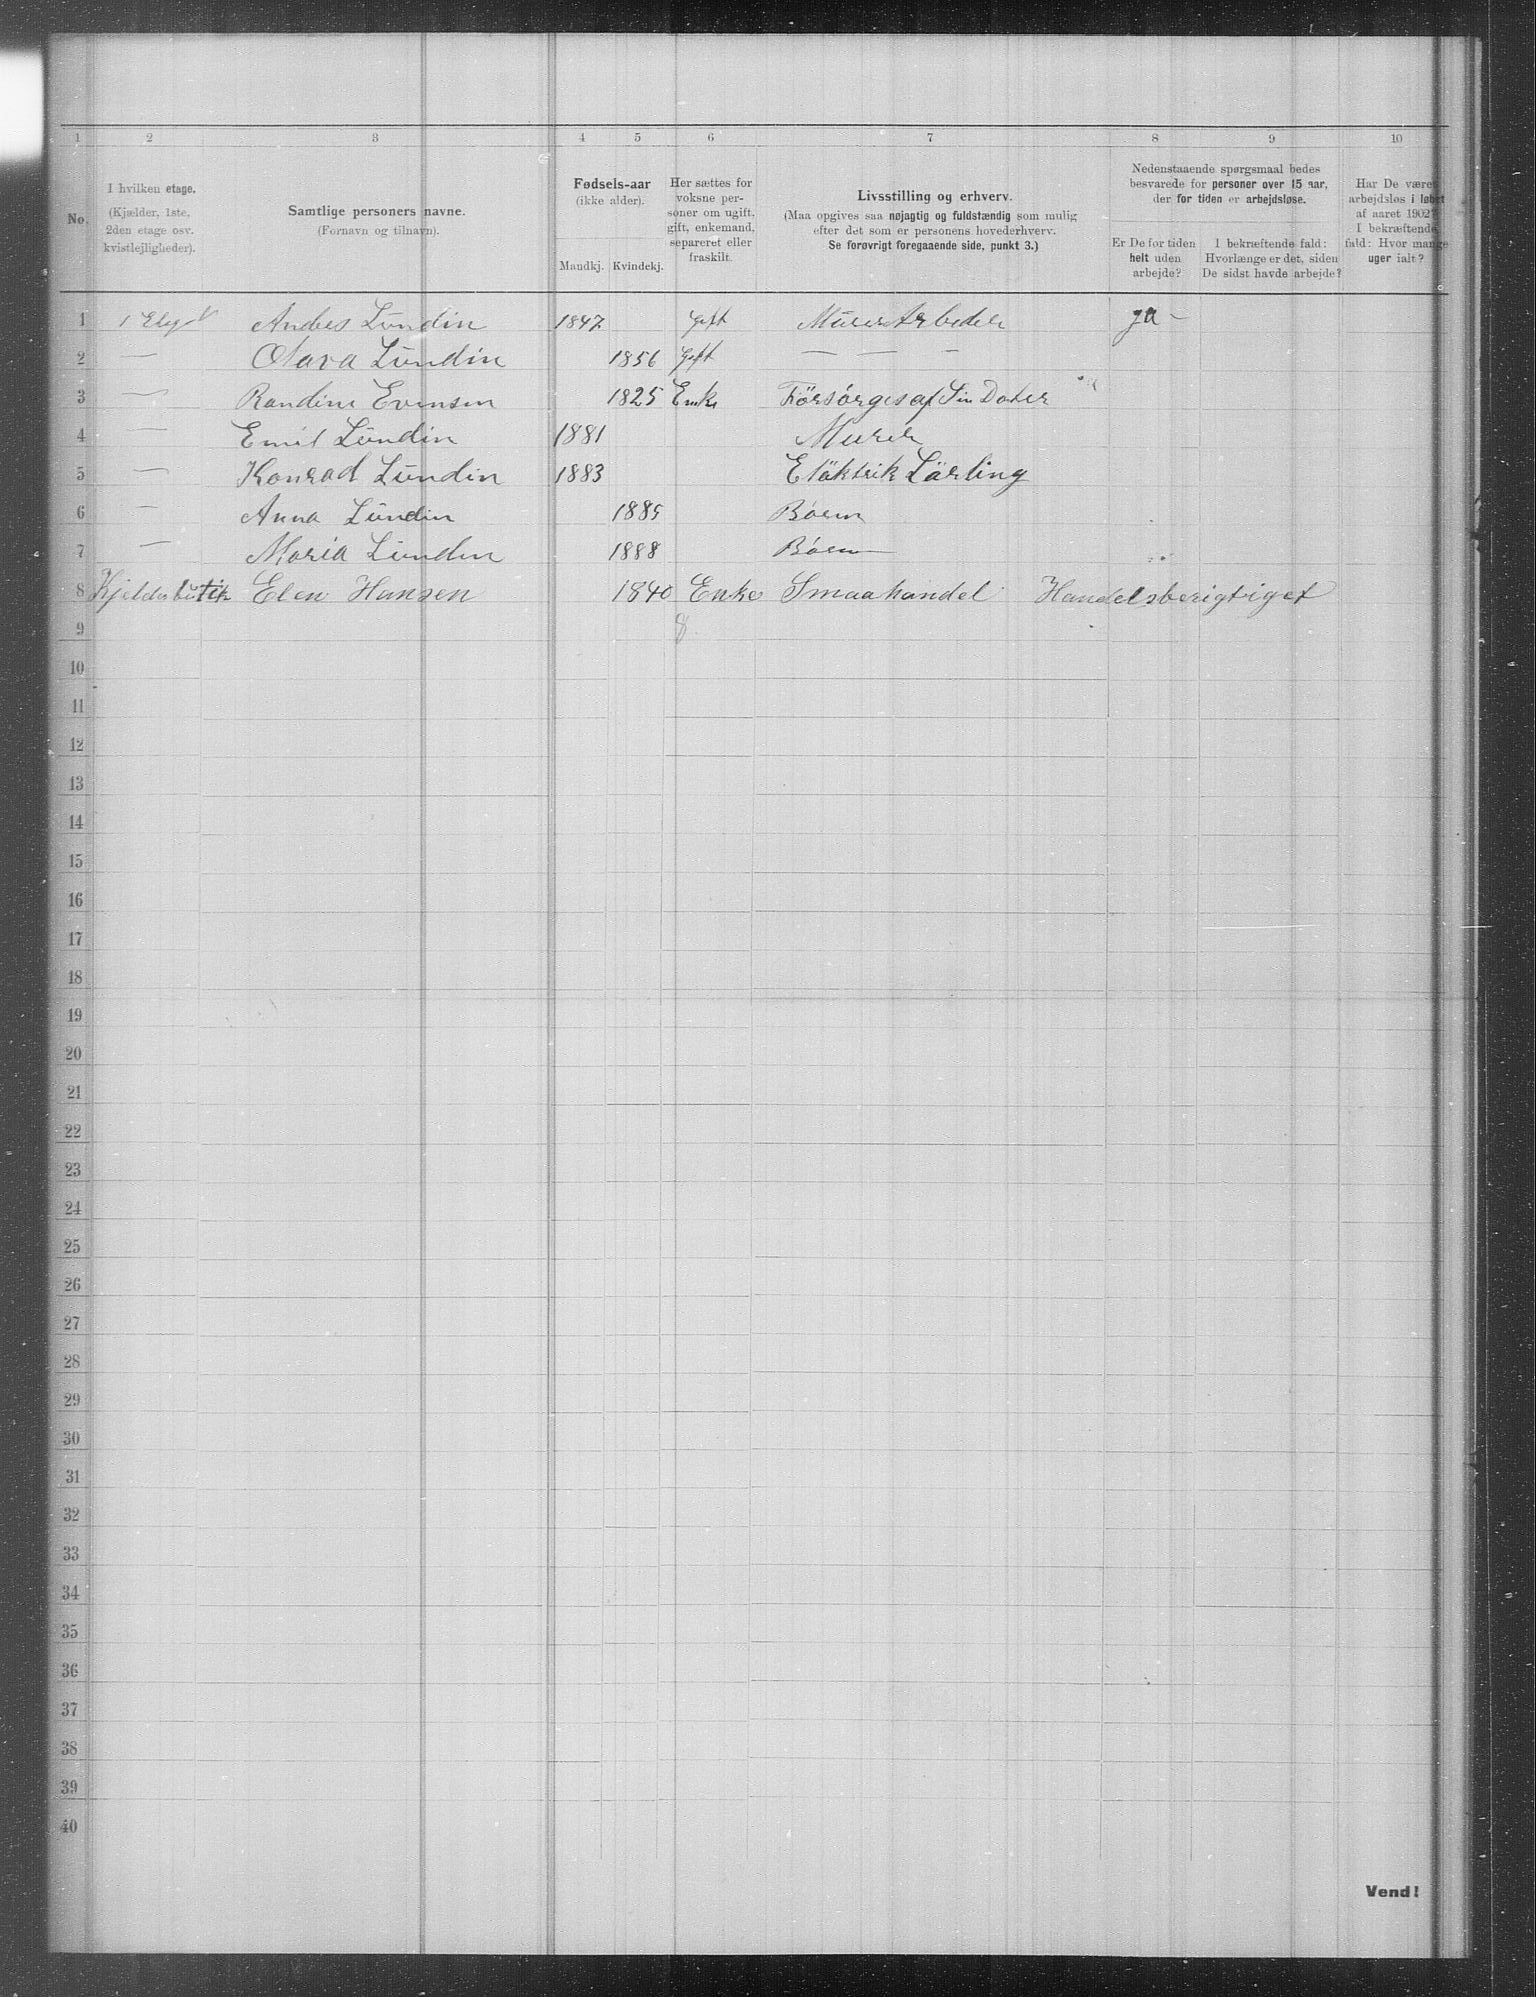 1 2 3 4 5 6 7 8 9 10
No.
I hvilken etage.
(Kjælder, 1ste,
2den etage osv.
kvistlejligheder).
Samtlige personers navne.
(Fornavn og tilnavn).
Fødsels-aar
(ikke alder).
Mandkj. Kvindekj.
Her sættes for
voksne per-
soner om ugift,
gift, enkemand,
separeret eller
fraskilt.
Livsstilling og erhverv.
(Maa opgives saa nøjagtig og fuldstændig som mulig
efter det som er personens hovederhverv.
Se forøvrigt foregaaende side, punkt 3.)
Nedenstaaende spørgsmaal bedes
besvarede for personer over 15 aar,
der for tiden er arbejdsløse.
Er De for tiden
helt uden
arbejde?
I bekræftende fald:
Hvorlænge er det, siden
De sidst havde arbejde?
Har De været
arbejdsløs i løbet
af aaret 1902?
I bekræftende
fald: Hvor mange
uger ialt?
1 1 Andres Lundin 1847 Gift MurerArbeder ja -
2 — Olava Lundin 1856 Gift — — —
3 — Randine Evensen 1825 Enke Försörges af Sin Dater
4 — Emil Lundin 1881 Murer
5 — Konrad Lundin 1883 Eläktrik Lärling
6 — Anna Lundin 1885 Börn
7 — Maria Lundin 1888 Börn
8 Kjelderbutik Elen Hansen 1840 Enke Smaahandel Handelsberigtiget
9 8
10
11
12
13
14
15
16
17
18
19
20
21
22
23
24
25
26
27
28
29
30
31
32
33
34
35
36
37
38
39
40
Vend!